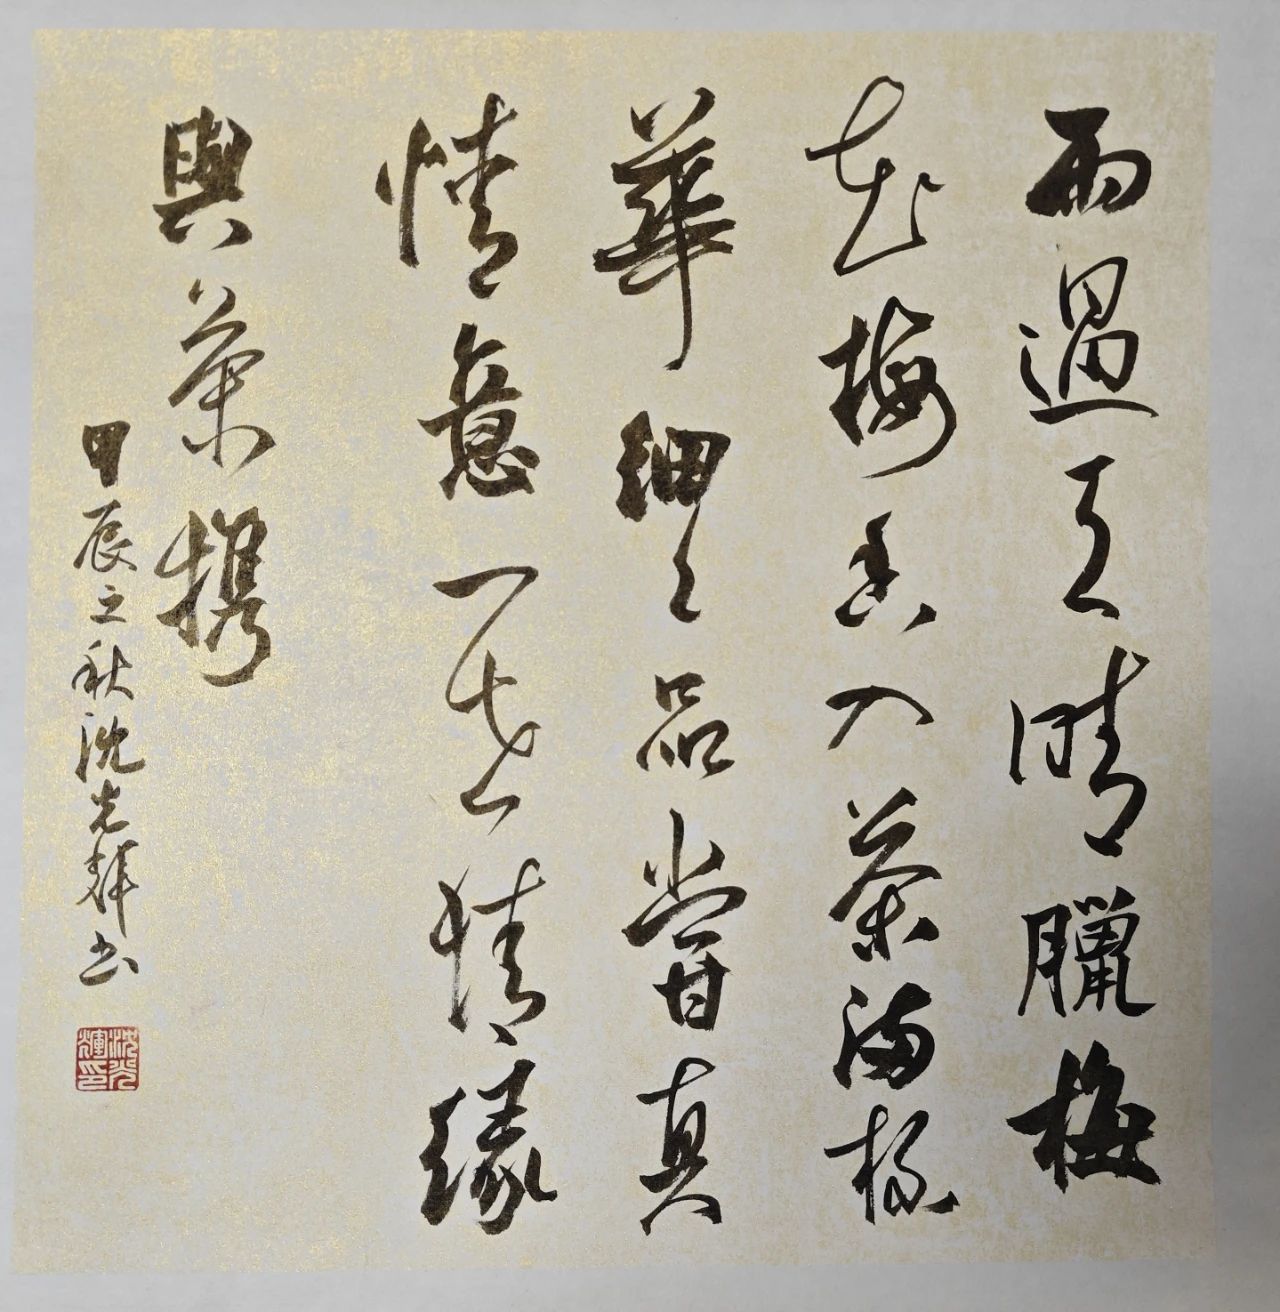 雨過天晴臘梅
花梅香入茶滿杯
華細〻品甞真
情意一世情緣
與茶携
甲辰之秋沈光輝书
沈光輝印